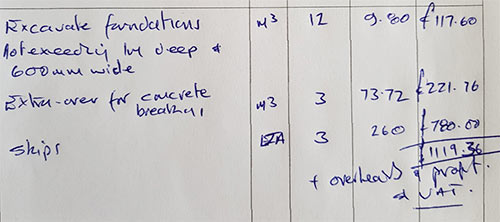 Excavate foundations M3 12 9.80 £117.60
Not exceeding 1m deep &
600mm wide
Extra-over for concrete M3 3 73.72 £221.76
breaking
Skips EA 3 260 £780.00
£1119.36
+ overheads & profit.
& VAT.